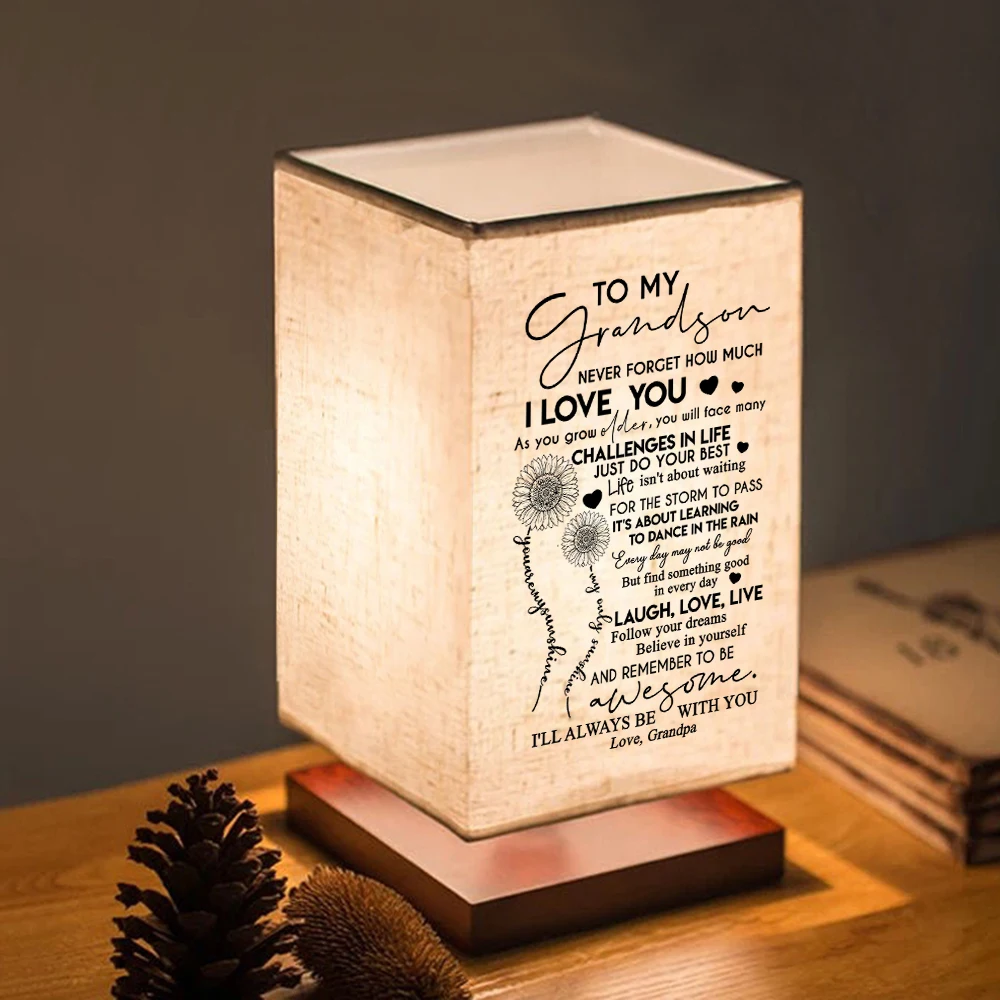 TO MY
Grandson
NEVER FORGET HOW MUCH
I LOVE YOU
As you grow older, you will face many
CHALLENGES IN LIFE
JUST DO YOUR BEST
Life isn't about waiting
FOR THE STORM TO PASS
IT'S ABOUT LEARNING
TO DANCE IN THE RAIN
Every day may not be good
But find something good
in every day
LAUGH, LOVE, LIVE
Follow your dreams
Believe in yourself
AND REMEMBER TO BE
awesome.
I'LL ALWAYS BE WITH YOU
Love, Grandpa
youaremysunshine
my only sunshine